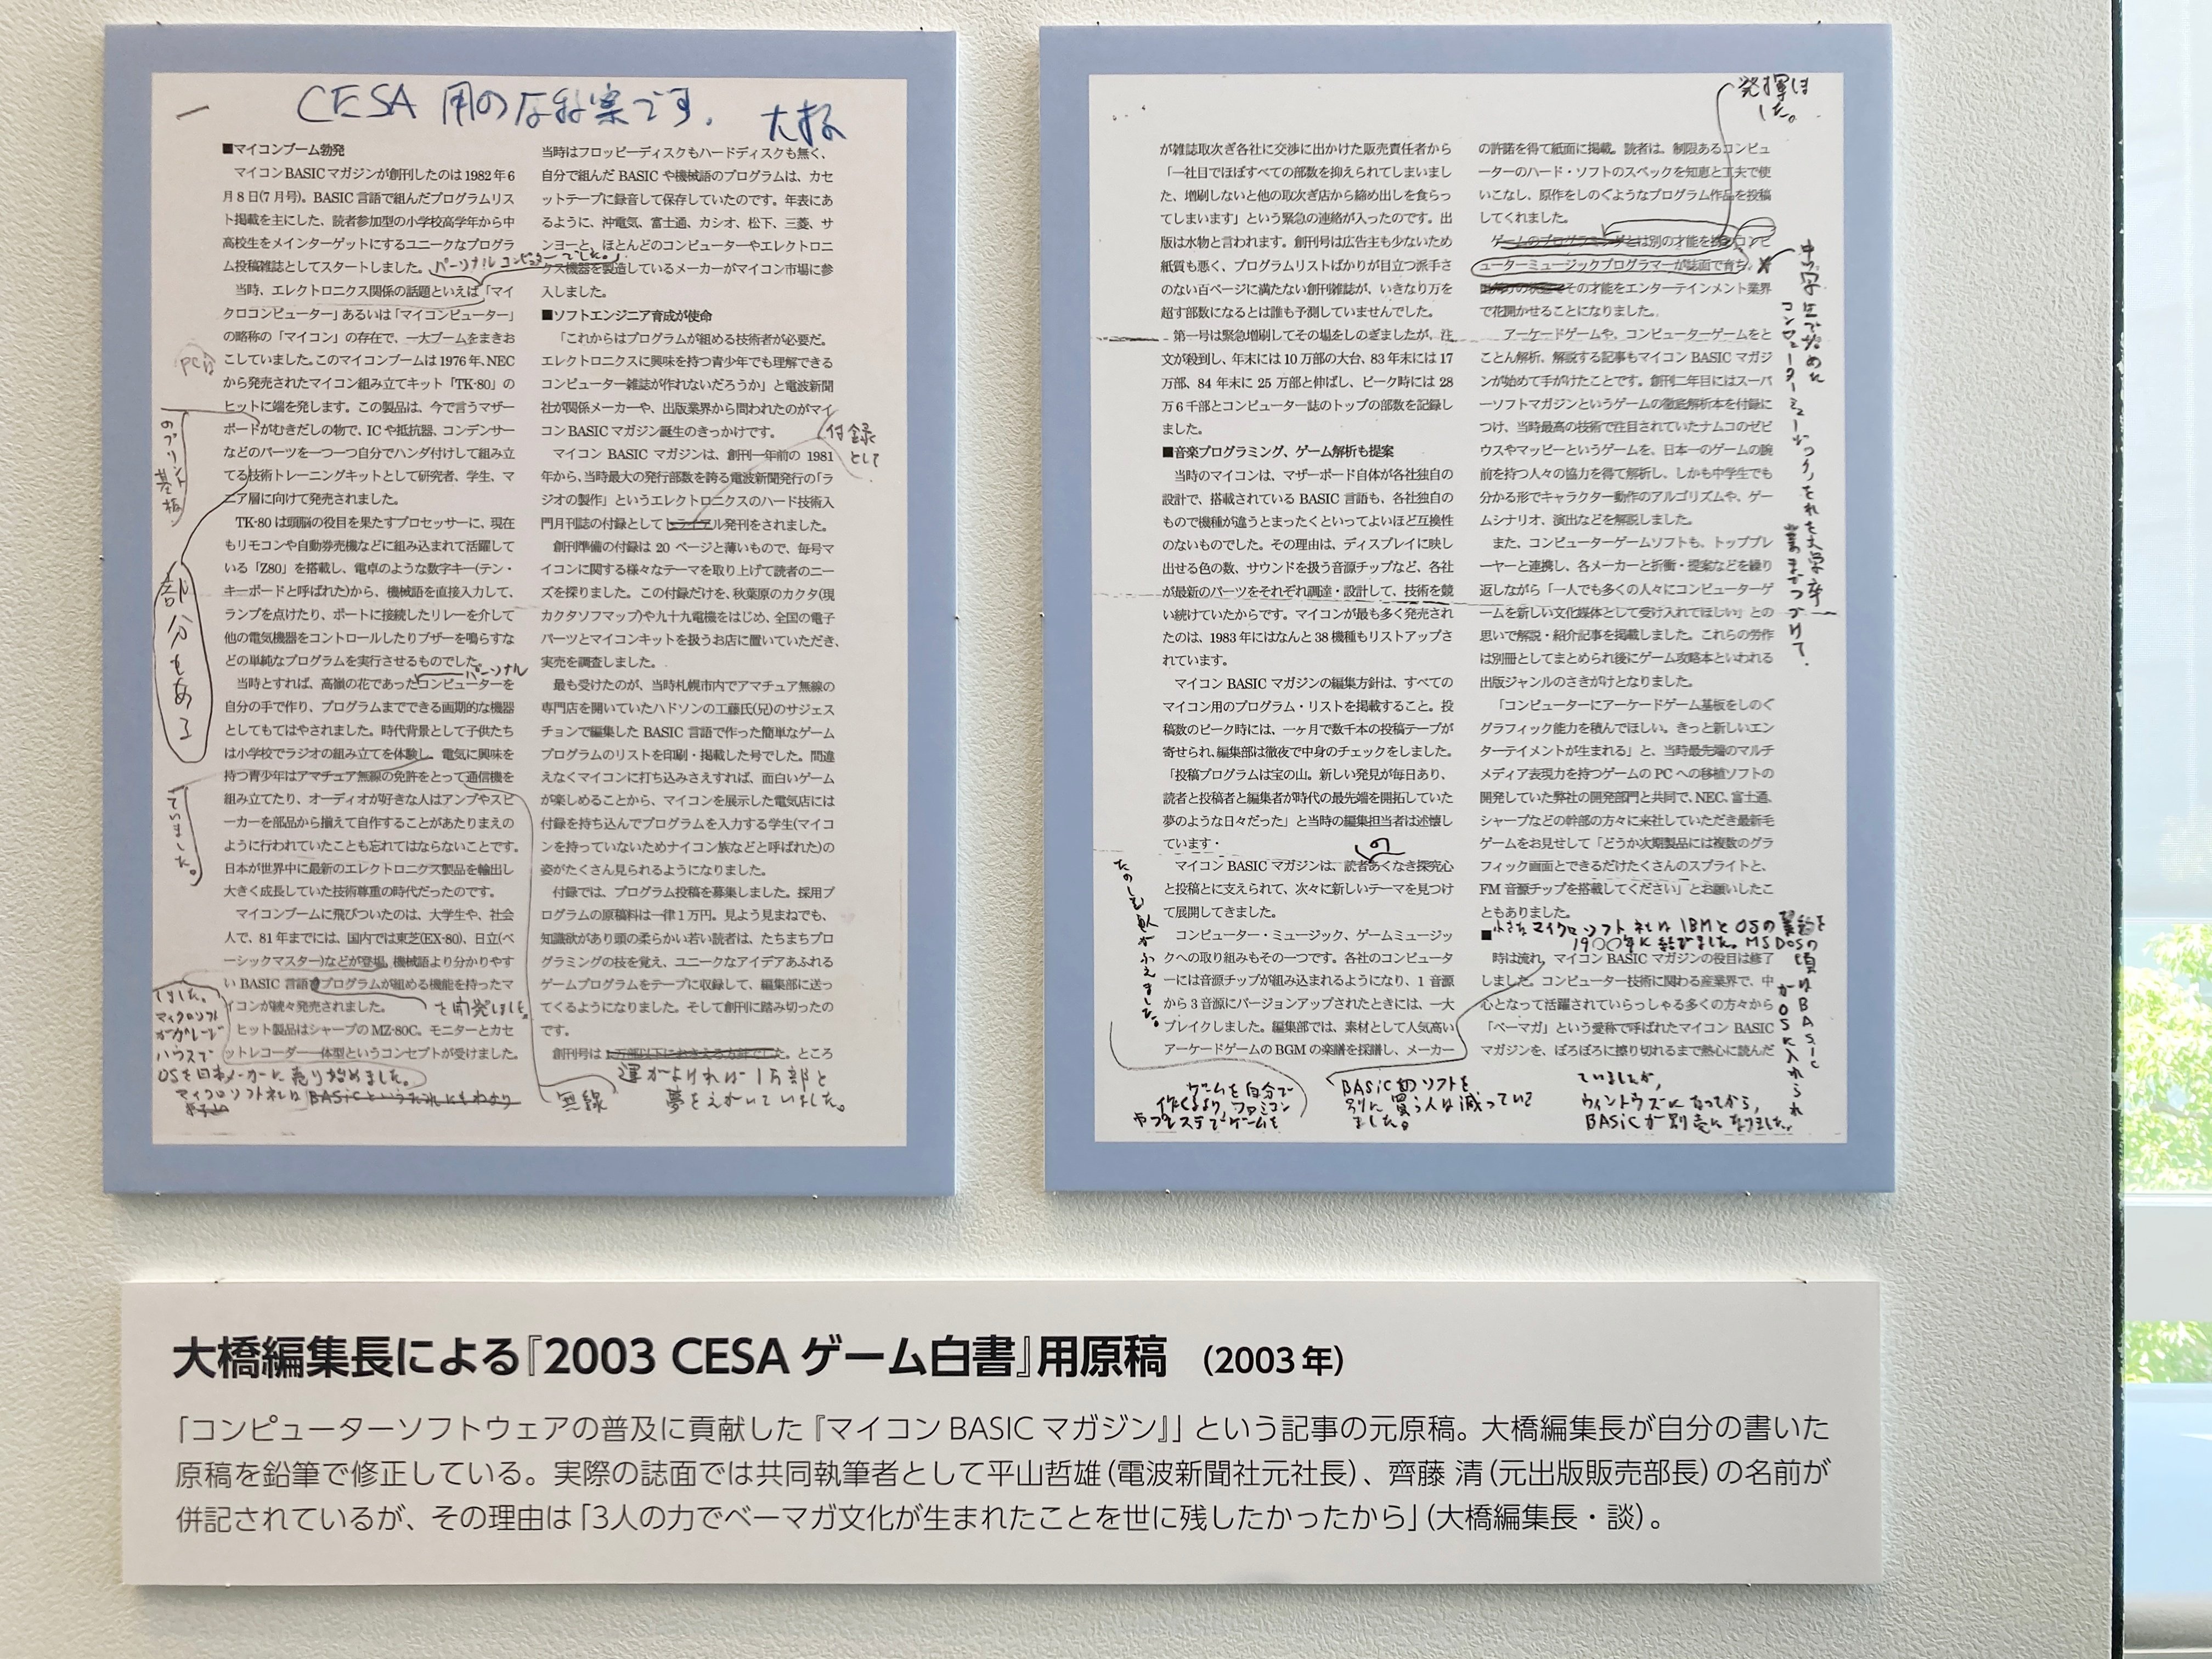 CESA 用の
案です。 大橋
■マイコンブーム勃発
マイコンBASICマガジンが創刊したのは1982年6
月8日(7月号)。BASIC言語で組んだプログラムリス
ト掲載を主にした、読者参加型の小学校高学年から中
高校生をメインターゲットにするユニークなプログラ
ム投稿雑誌としてスタートしました。
パーソナルコンピューターでした。
当時、エレクトロニクス関係の話題といえば「マイ
クロコンピューター」あるいは「マイコンピューター」
の略称の「マイコン」の存在で、一大ブームをまきお
こしていました。このマイコンブームは1976年、NEC
から発売されたマイコン組み立てキット「TK-80」の
ヒットに端を発します。この製品は、今で言うマザー
ボードがむきだしの物で、ICや抵抗器、コンデンサー
などのパーツを一つ一つ自分でハンダ付けして組み立
てる技術トレーニングキットとして研究者、学生、マ
ニア層に向けて発売されました。
TK-80は頭脳の役目を果たすプロセッサーに、現在
もリモコンや自動券売機などに組み込まれて活躍して
いる「Z80」を搭載し、電卓のような数字キー(テン・
キーボードと呼ばれた)から、機械語を直接入力して、
ランプを点けたり、ポートに接続したリレーを介して
他の電気機器をコントロールしたりブザーを鳴らすな
どの単純なプログラムを実行させるものでした。
パーソナル
当時とすれば、高嶺の花であったコンピューターを
自分の手で作り、プログラムまでできる画期的な機器
としてもてはやされました。時代背景として子供たち
は小学校でラジオの組み立てを体験し、電気に興味を
持つ青少年はアマチュア無線の免許をとって通信機を
組み立てたり、オーディオが好きな人はアンプやスピ
ーカーを部品から揃えて自作することがあたりまえの
ように行われていたことも忘れてはならないことです。
日本が世界中に最新のエレクトロニクス製品を輸出し
大きく成長していた技術尊重の時代だったのです。
マイコンブームに飛びついたのは、大学生や、社会
人で、81年までには、国内では東芝(EX-80)、日立(ベ
ーシックマスター)などが登場。機械語より分かりやす
い BASIC 言語でプログラムが組める機能を持ったマ
イコンが続々発売されました。
を開発しました。
ヒット製品はシャープのMZ-80C。モニターとカセ
ットレコーダー一体型というコンセプトが受けました。
PCは
のプリント
基板
部分もある
ていました。
しました。
マイクロソフト
がガレージ
ハウスで
OSを日本メーカーに売り始めました。
マイクロソフト社は
当時はフロッピーディスクもハードディスクも無く、
自分で組んだ BASIC や機械語のプログラムは、カセ
ットテープに録音して保存していたのです。年表にあ
るように、沖電気、富士通、カシオ、松下、三菱、サ
ンヨーと、ほとんどのコンピューターやエレクトロニ
クス機器を製造しているメーカーがマイコン市場に参
入しました。
■ソフトエンジニア育成が使命
「これからはプログラムが組める技術者が必要だ。
エレクトロニクスに興味を持つ青少年でも理解できる
コンピューター雑誌が作れないだろうか」と電波新聞
社が関係メーカーや、出版業界から問われたのがマイ
コン BASIC マガジン誕生のきっかけです。
付録
として
マイコン BASIC マガジンは、創刊一年前の 1981
年から、当時最大の発行部数を誇る電波新聞発行の「ラ
ジオの製作」というエレクトロニクスのハード技術入
門月刊誌の付録としてトライアル発刊をされました。
創刊準備の付録は 20 ページと薄いもので、毎号マ
イコンに関する様々なテーマを取り上げて読者のニー
ズを探りました。この付録だけを、秋葉原のカクタ(現
カクタソフマップ)や九十九電機をはじめ、全国の電子
パーツとマイコンキットを扱うお店に置いていただき、
実売を調査しました。
最も受けたのが、当時札幌市内でアマチュア無線の
専門店を開いていたハドソンの工藤氏(兄)のサジェス
チョンで編集した BASIC 言語で作った簡単なゲーム
プログラムのリストを印刷・掲載した号でした。間違
えなくマイコンに打ち込みさえすれば、面白いゲーム
が楽しめることから、マイコンを展示した電気店には
付録を持ち込んでプログラムを入力する学生(マイコ
ンを持っていないためナイコン族などと呼ばれた)の
姿がたくさん見られるようになりました。
付録では、プログラム投稿を募集しました。採用プ
ログラムの原稿料は一律1万円。見よう見まねでも、
知識欲があり頭の柔らかい若い読者は、たちまちプロ
グラミングの技を覚え、ユニークなアイデアあふれる
ゲームプログラムをテープに収録して、編集部に送っ
てくるようになりました。そして創刊に踏み切ったの
です。
創刊号は1万部以下におさえる方針でした。ところ
無線
運がよければ1万部と
夢をえがいていました。
が雑誌取次ぎ各社に交渉に出かけた販売責任者から
「一社目でほぼすべての部数を抑えられてしまいまし
た、増刷しないと他の取次ぎ店から締め出しを食らっ
てしまいます」という緊急の連絡が入ったのです。出
版は水物と言われます。創刊号は広告主も少ないため
紙質も悪く、プログラムリストばかりが目立つ派手さ
のない百ページに満たない創刊雑誌が、いきなり万を
超す部数になるとは誰も予測していませんでした。
第一号は緊急増刷してその場をしのぎましたが、注
文が殺到し、年末には10万部の大台、83年末には17
万部、84 年末に 25 万部と伸ばし、ピーク時には 28
万6千部とコンピューター誌のトップの部数を記録し
ました。
■音楽プログラミング、ゲーム解析も提案
当時のマイコンは、マザーボード自体が各社独自の
設計で、搭載されている BASIC 言語も、各社独自の
もので機種が違うとまったくといってよいほど互換性
のないものでした。その理由は、ディスプレイに映し
出せる色の数、サウンドを扱う音源チップなど、各社
が最新のパーツをそれぞれ調達・設計して、技術を競
い続けていたからです。マイコンが最も多く発売され
たのは、1983 年にはなんと 38 機種もリストアップさ
れています。
マイコン BASIC マガジンの編集方針は、すべての
マイコン用のプログラム・リストを掲載すること。投
稿数のピーク時には、一ヶ月で数千本の投稿テープが
寄せられ、編集部は徹夜で中身のチェックをしました。
「投稿プログラムは宝の山。新しい発見が毎日あり、
読者と投稿者と編集者が時代の最先端を開拓していた
夢のような日々だった」と当時の編集担当者は述懐し
ています・
の
マイコン BASIC マガジンは、読者あくなき探究心
と投稿とに支えられて、次々に新しいテーマを見つけ
て展開してきました。
コンピューター・ミュージック、ゲームミュージッ
クへの取り組みもその一つです。各社のコンピュータ
ーには音源チップが組み込まれるようになり、1 音源
から3音源にバージョンアップされたときには、一大
ブレイクしました。編集部では、素材として人気高い
アーケードゲームのBGMの楽譜を採譜し、メーカー
たのしむ人がふえました。
ゲームを自分で
作くるより、ファミコン
やプレステでゲームを
BASIC用ソフトを
別に買う人は減ってい
ました。
発揮しま
した。
の許諾を得て紙面に掲載。読者は、制限あるコンピュ
ーターのハード・ソフトのスペックを知恵と工夫で使
いこなし、原作をしのぐようなプログラム作品を投稿
してくれました。
ゲームのプログラミングとは別の才能を持つコンピ
ューターミュージックプログラマーが誌面で育ち、
その才能をエンターテインメント業界
で花開かせることになりました。
アーケードゲームや、コンピューターゲームをと
ことん解析、解説する記事もマイコン BASIC マガジ
ンが始めて手がけたことです。創刊二年目にはスーパ
ーソフトマガジンというゲームの徹底解析本を付録に
つけ、当時最高の技術で注目されていたナムコのゼビ
ウスやマッピーというゲームを、日本一のゲームの腕
前を持つ人々の協力を得て解析し、しかも中学生でも
分かる形でキャラクター動作のアルゴリズムや、ゲー
ムシナリオ、演出などを解説しました。
また、コンピューターゲームソフトも、トッププレ
ーヤーと連携し、各メーカーと折衝・提案などを繰り
返しながら「一人でも多くの人々にコンピューターゲ
ームを新しい文化媒体として受け入れてほしい」との
思いで解説・紹介記事を掲載しました。これらの労作
は別冊としてまとめられ後にゲーム攻略本といわれる
出版ジャンルのさきがけとなりました。
「コンピューターにアーケードゲーム基板をしのぐ
グラフィック能力を積んでほしい。きっと新しいエン
ターテイメントが生まれる」と、当時最先端のマルチ
メディア表現力を持つゲームの PC への移植ソフトの
開発していた弊社の開発部門と共同で、NEC、富士通、
シャープなどの幹部の方々に来社していただき最新毛
ゲームをお見せして「どうか次期製品には複数のグラ
フィック画面とできるだけたくさんのスプライトと、
FM 音源チップを搭載してください」とお願いしたこ
ともありました。
小さなマイクロソフト社はIBMとOSの契約を
■
19〇〇年に結びました。MS DOSの
頃はBASIC
がOSに入れられ
時は流れ、マイコン BASIC マガジンの役目は修了
しました。コンピューター技術に関わる産業界で、中
心となって活躍されていらっしゃる多くの方々から
「ベーマガ」という愛称で呼ばれたマイコン BASIC
マガジンを、ぼろぼろに擦り切れるまで熱心に読んだ
ていましたが、
ウィンドウズになってから、
BASICが別売になりました。
大橋編集長による『2003 CESA ゲーム白書』用原稿 (2003年)
「コンピューターソフトウェアの普及に貢献した『マイコン BASIC マガジン』」という記事の元原稿。大橋編集長が自分の書いた
原稿を鉛筆で修正している。実際の誌面では共同執筆者として平山哲雄(電波新聞社元社長)、齊藤 清(元出版販売部長)の名前が
併記されているが、その理由は「3人の力でベーマガ文化が生まれたことを世に残したかったから」(大橋編集長・談)。